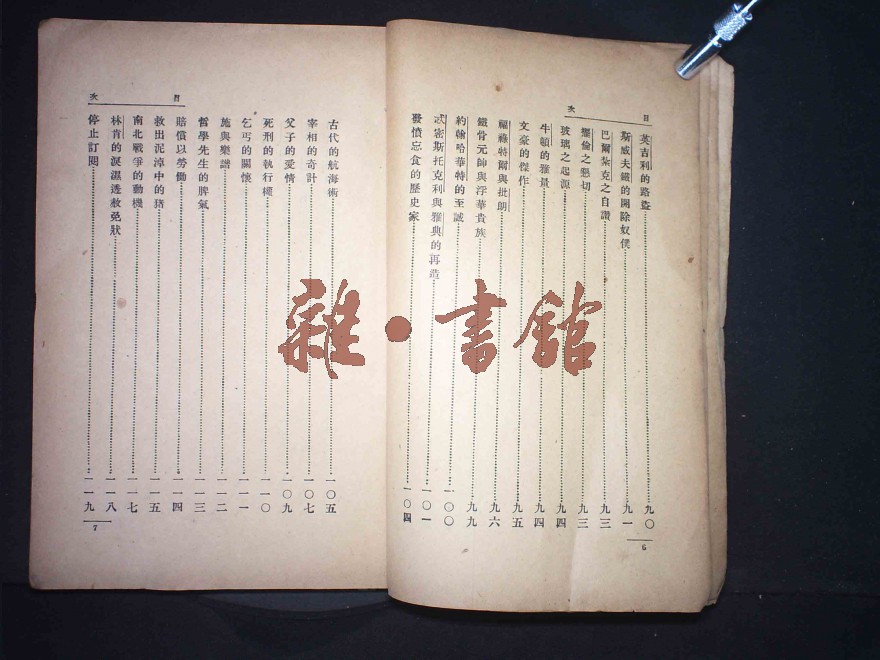 目次
英吉利的路盜……九〇
斯威夫鐵的開除奴僕……九一
巴爾紮克之自讚……九三
擺倫之懇切……九三
玻璃之起源……九四
牛頓的雅量……九四
文豪的傑作……九五
福祿特爾與批朗……九六
鐵骨元帥與浮華貴族……九九
約翰哈華特的至誠……一〇〇
忒密斯托克利與雅典的再造……一〇一
發憤忘食的歷史家……一〇四
6
目次
古代的航海術……一〇五
宰相的奇計……一〇七
父子的愛情……一〇九
死刑的執行權……一一〇
乞丐的關懷……一一一
施與樂譜……一一二
哲學先生的脾氣……一一三
賠償以勞働……一一四
救出泥淖中的猪……一一五
南北戰爭的動機……一一七
林肯的淚濕透赦免狀……一一八
停止訂閱……一一九
7
雜·書館